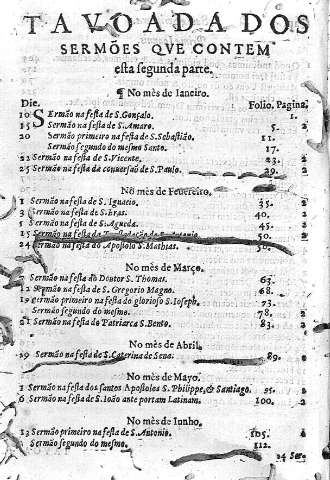 TAVOADA DOS
SERMÕES QVE CONTEM
esta segunda parte.
¶ No mês de Ianeiro.
Die. Folio. Pagina.
10 SErmão na festa de S. Gonçalo. 1.
15 Sermão na festa de S. Amaro. 5. 2
20 Sermão primeiro na festa de S. Sebastião. 11. 2
Sermão segundo do mesmo Santo. 17.
22 Sermão na festa de S. Vicente. 23. 2
25 Sermão na festa da conuersaõ de S. Paulo. 29. 2
No mês de Feuereiro.
1 Sermão na festa de S. Ignacio. 35. 2
3 Sermão na festa de S. bras. 40. 2
5 Sermão na festa de S. Agueda. 45. 2
15 Sermão na festa da de S. Antonio. 50. 2
24 Sermão na festa do Apostolo S. Mathias. 56. 2
No mês de Março.
7 Sermão na festa do Doutor S. Thomas. 63.
12 Sermão na festa de S. Gregorio Magno. 68.
19 Sermão primeiro na festa do glorioso S. Ioseph. 73.
Sermão segundo do mesmo. 78. 2
21 Sermão na festa do Patriarca S. Bento. 83. 2
No mês de Abril.
29 Sermão na festa de S. Caterina de Sena. 89. 2
No mês de Mayo.
1 Sermão na festa dos santos Apostolos S. Philippe, & Santiago. 95. 2
6 Sermão na festa de S. Ioão ante portam Latinam. 100. 2
No mês de Iunho.
13 Sermão primeiro na festa de S. Antonio. 105. 2
Sermão segundo do mesmo. 112.
24 Ser